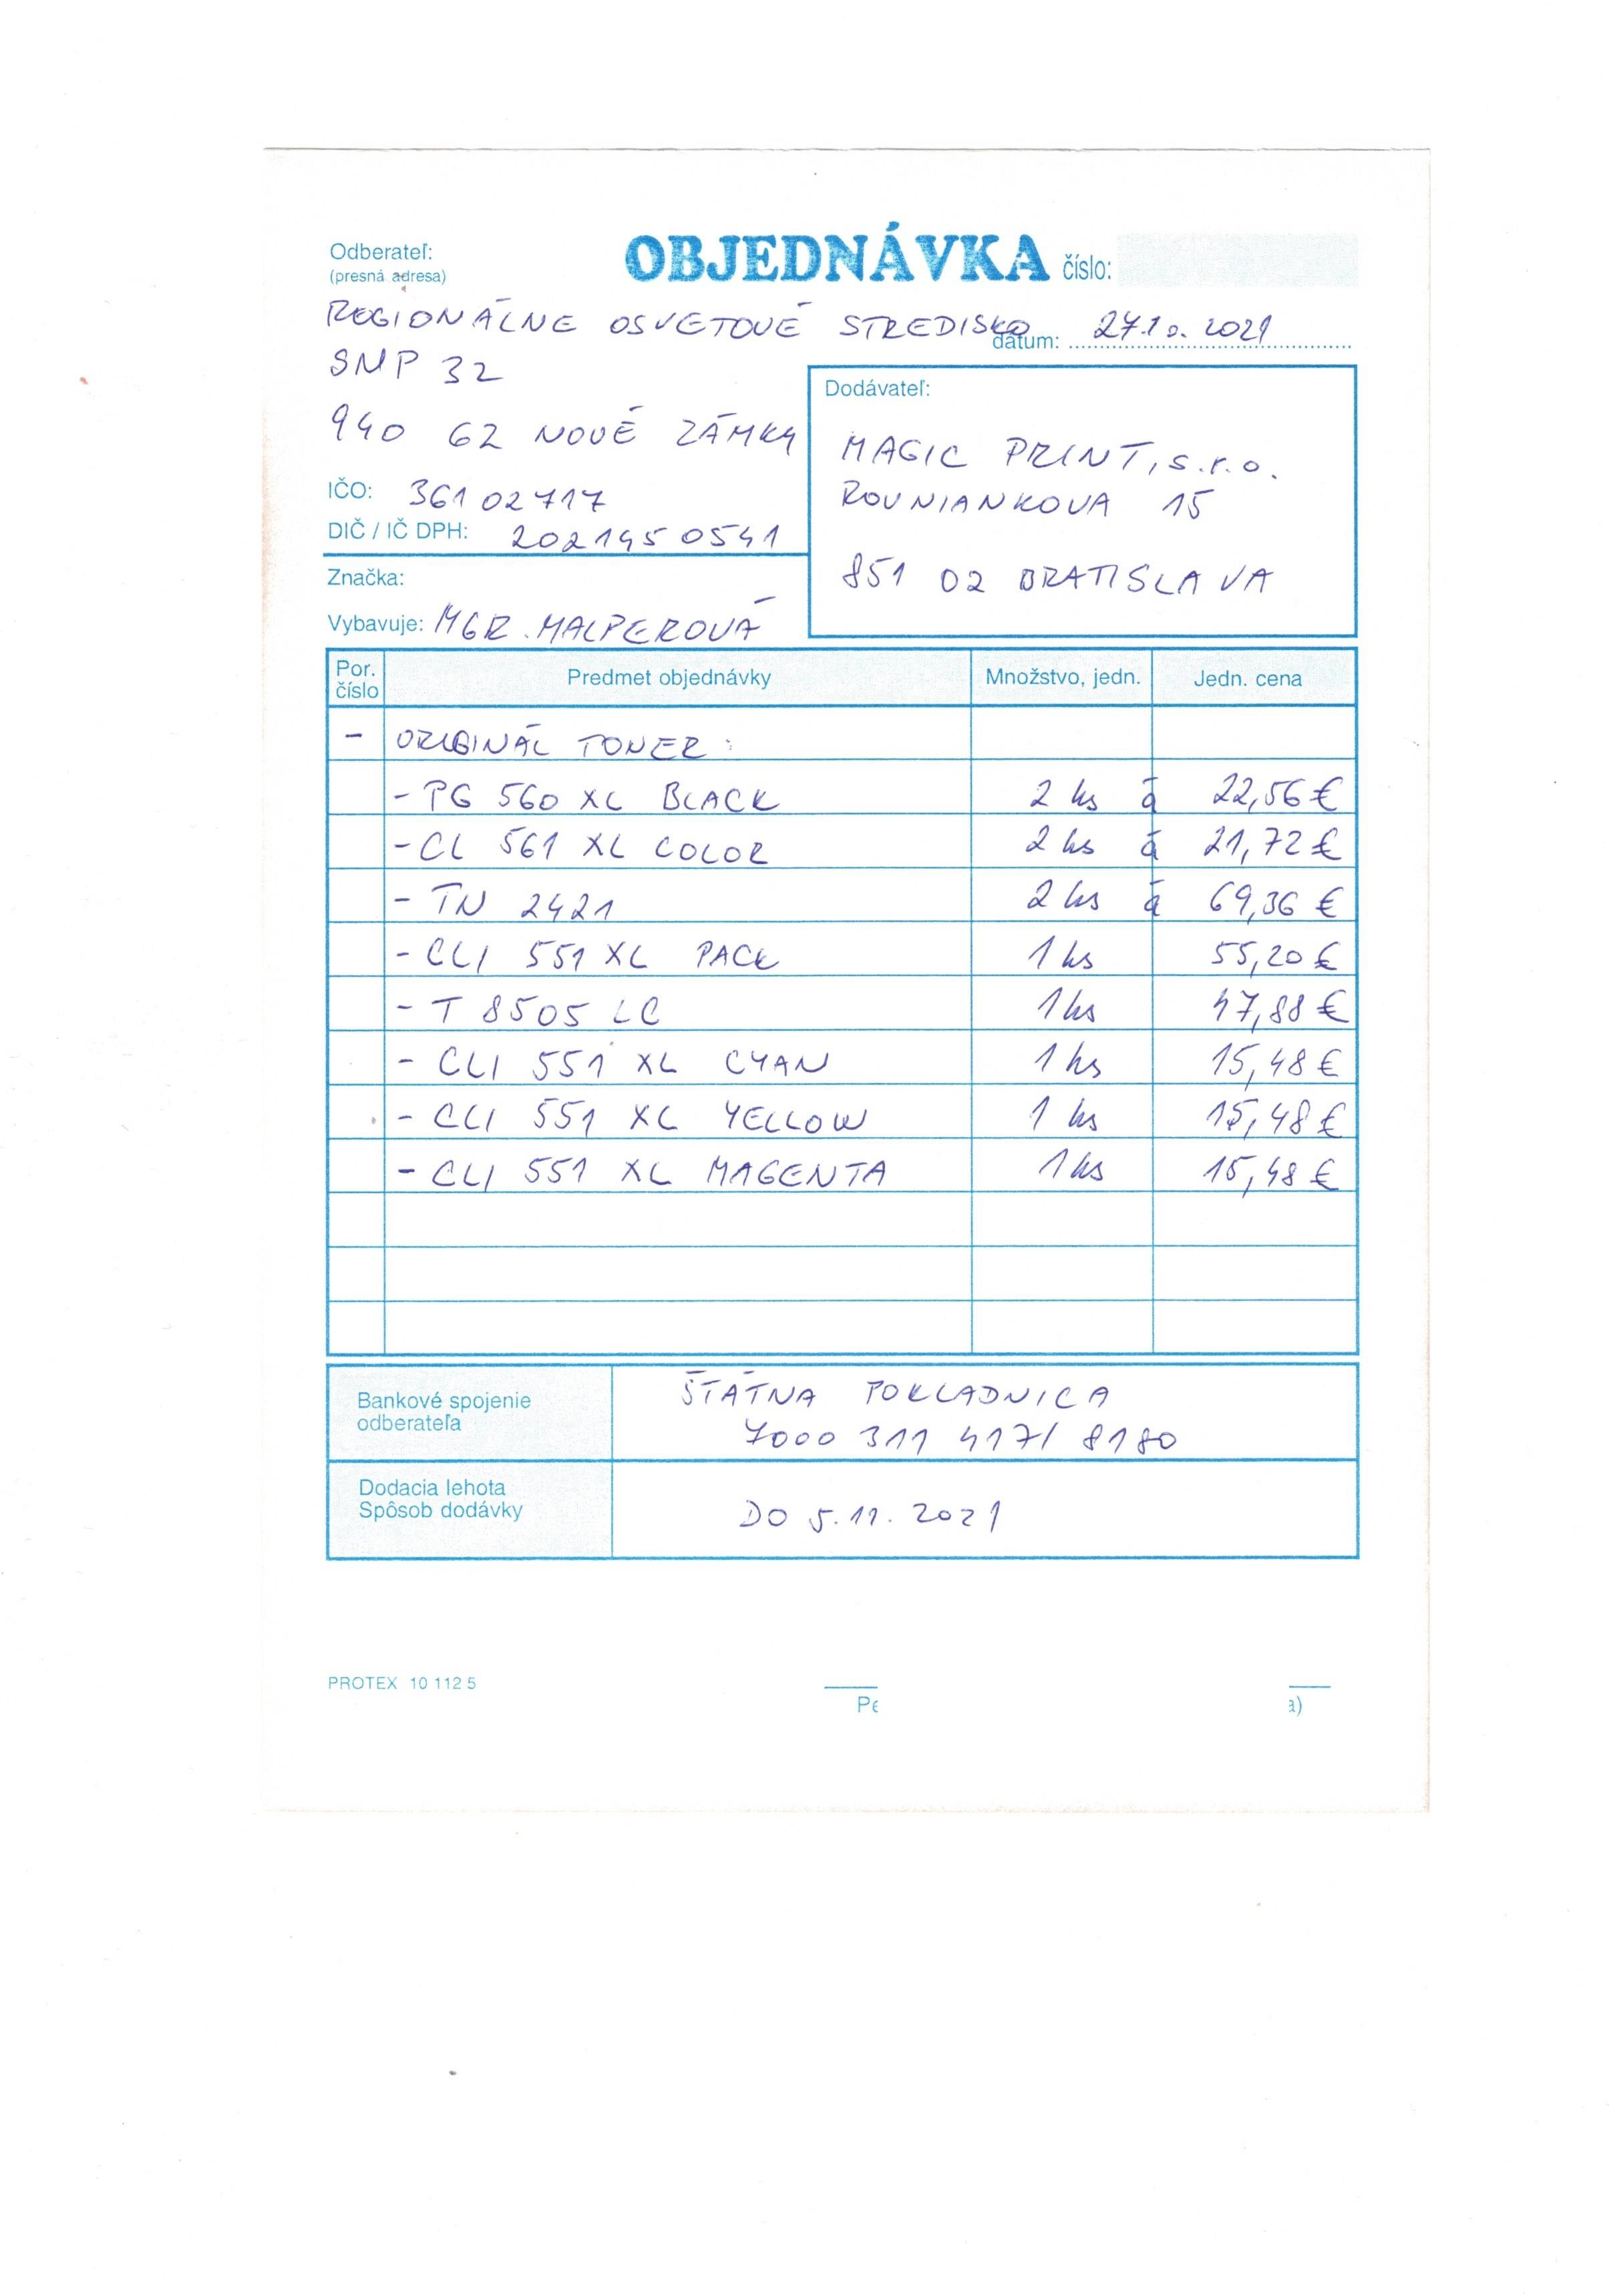 Odberateľ:
(presná adresa)
OBJEDNÁVKA číslo:
REGIONÁLNE OSVETOVÉ STREDISKO
dátum: 27.10.2021
SNP 32
940 62 NOVÉ ZÁMKY
IČO: 36102717
DIČ / IČ DPH: 2021450541
Značka:
Vybavuje: MGR. MALPEROVÁ
Dodávateľ:
MAGIC PRINT, s.r.o.
ROVNIANKOVA 15
851 02 BRATISLAVA
Por. číslo Predmet objednávky Množstvo, jedn. Jedn. cena
- ORIGINÁL TONER:
- PG 560 XL BLACK 2 ks á 22,56 €
- CL 561 XL COLOR 2 ks á 21,72 €
- TN 2421 2 ks á 69,36 €
- CLI 551 XL PACK 1 ks 55,20 €
- T 8505 LC 1 ks 47,88 €
- CLI 551 XL CYAN 1 ks 15,48 €
- CLI 551 XL YELLOW 1 ks 15,48 €
- CLI 551 XL MAGENTA 1 ks 15,48 €
Bankové spojenie
odberateľa
ŠTÁTNA POKLADNICA
7000 311 417/ 8180
Dodacia lehota
Spôsob dodávky
DO 5.11.2021
PROTEX 10 112 5
Pe
a)